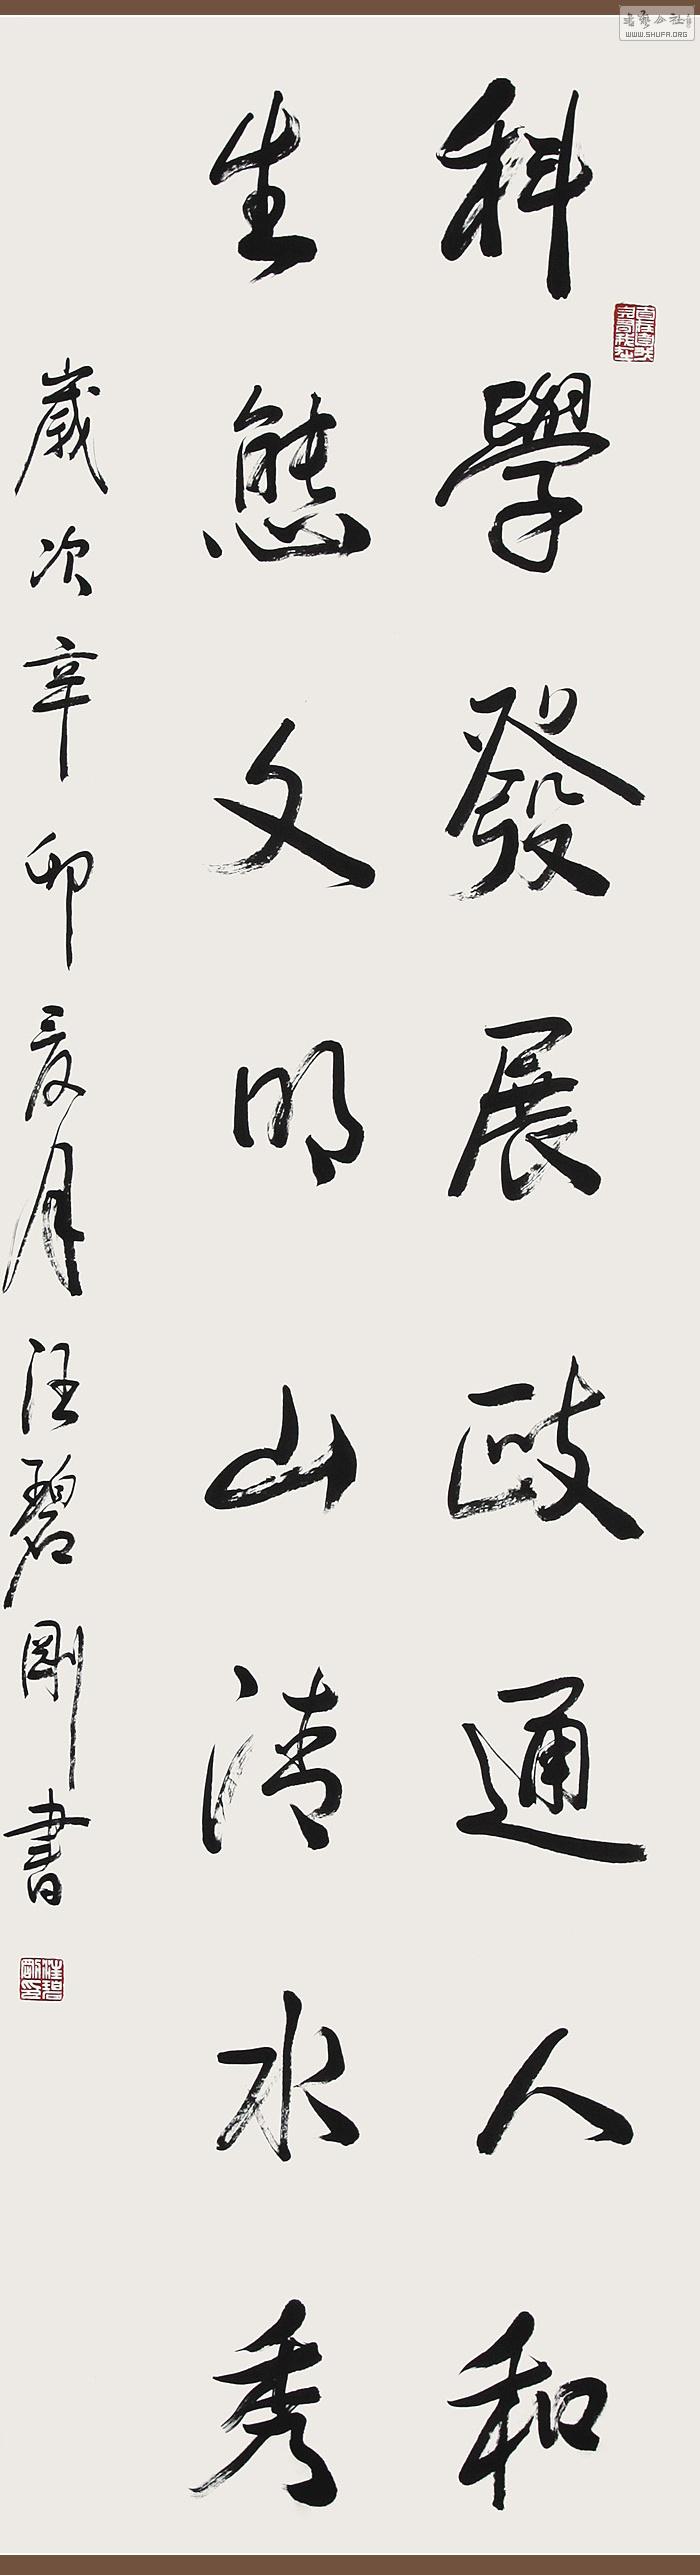 科學發展政通人和
生態文明山清水秀
歲次辛卯夏月汪碧剛書
汪碧剛印
书艺公社
WWW.SHUFA.ORG